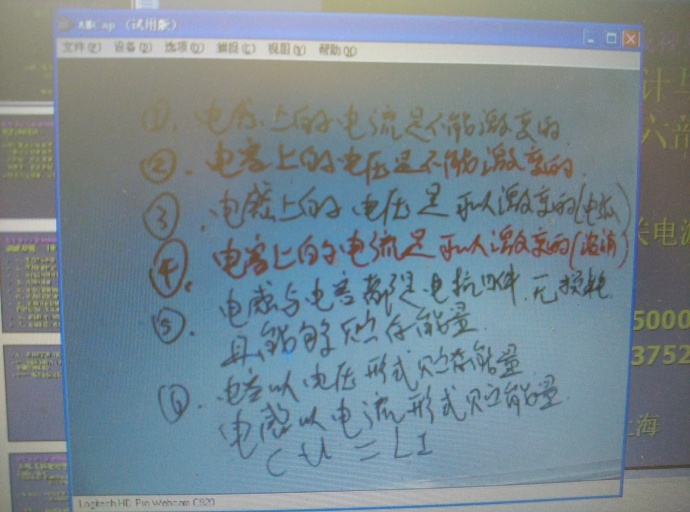 (试用版)
文件(F) 设备(D) 选项(O) 捕捉(C) 视图(V) 帮助(H)
①. 电感上的电流是不能激变的.
②. 电容上的电压是不能激变的.
③. 电感上的电压是可以激变的(
④. 电容上的电流是可以激变的(
⑤. 电感与电容都是电抗四件. 无损耗.
且能够贮存能量.
⑥. 电容以电压形式贮存能量
电感以电流形式贮能量.
CU = LI
Logitech HD Pro Webcam C920
计
六部
关电源
5000
3752
上海